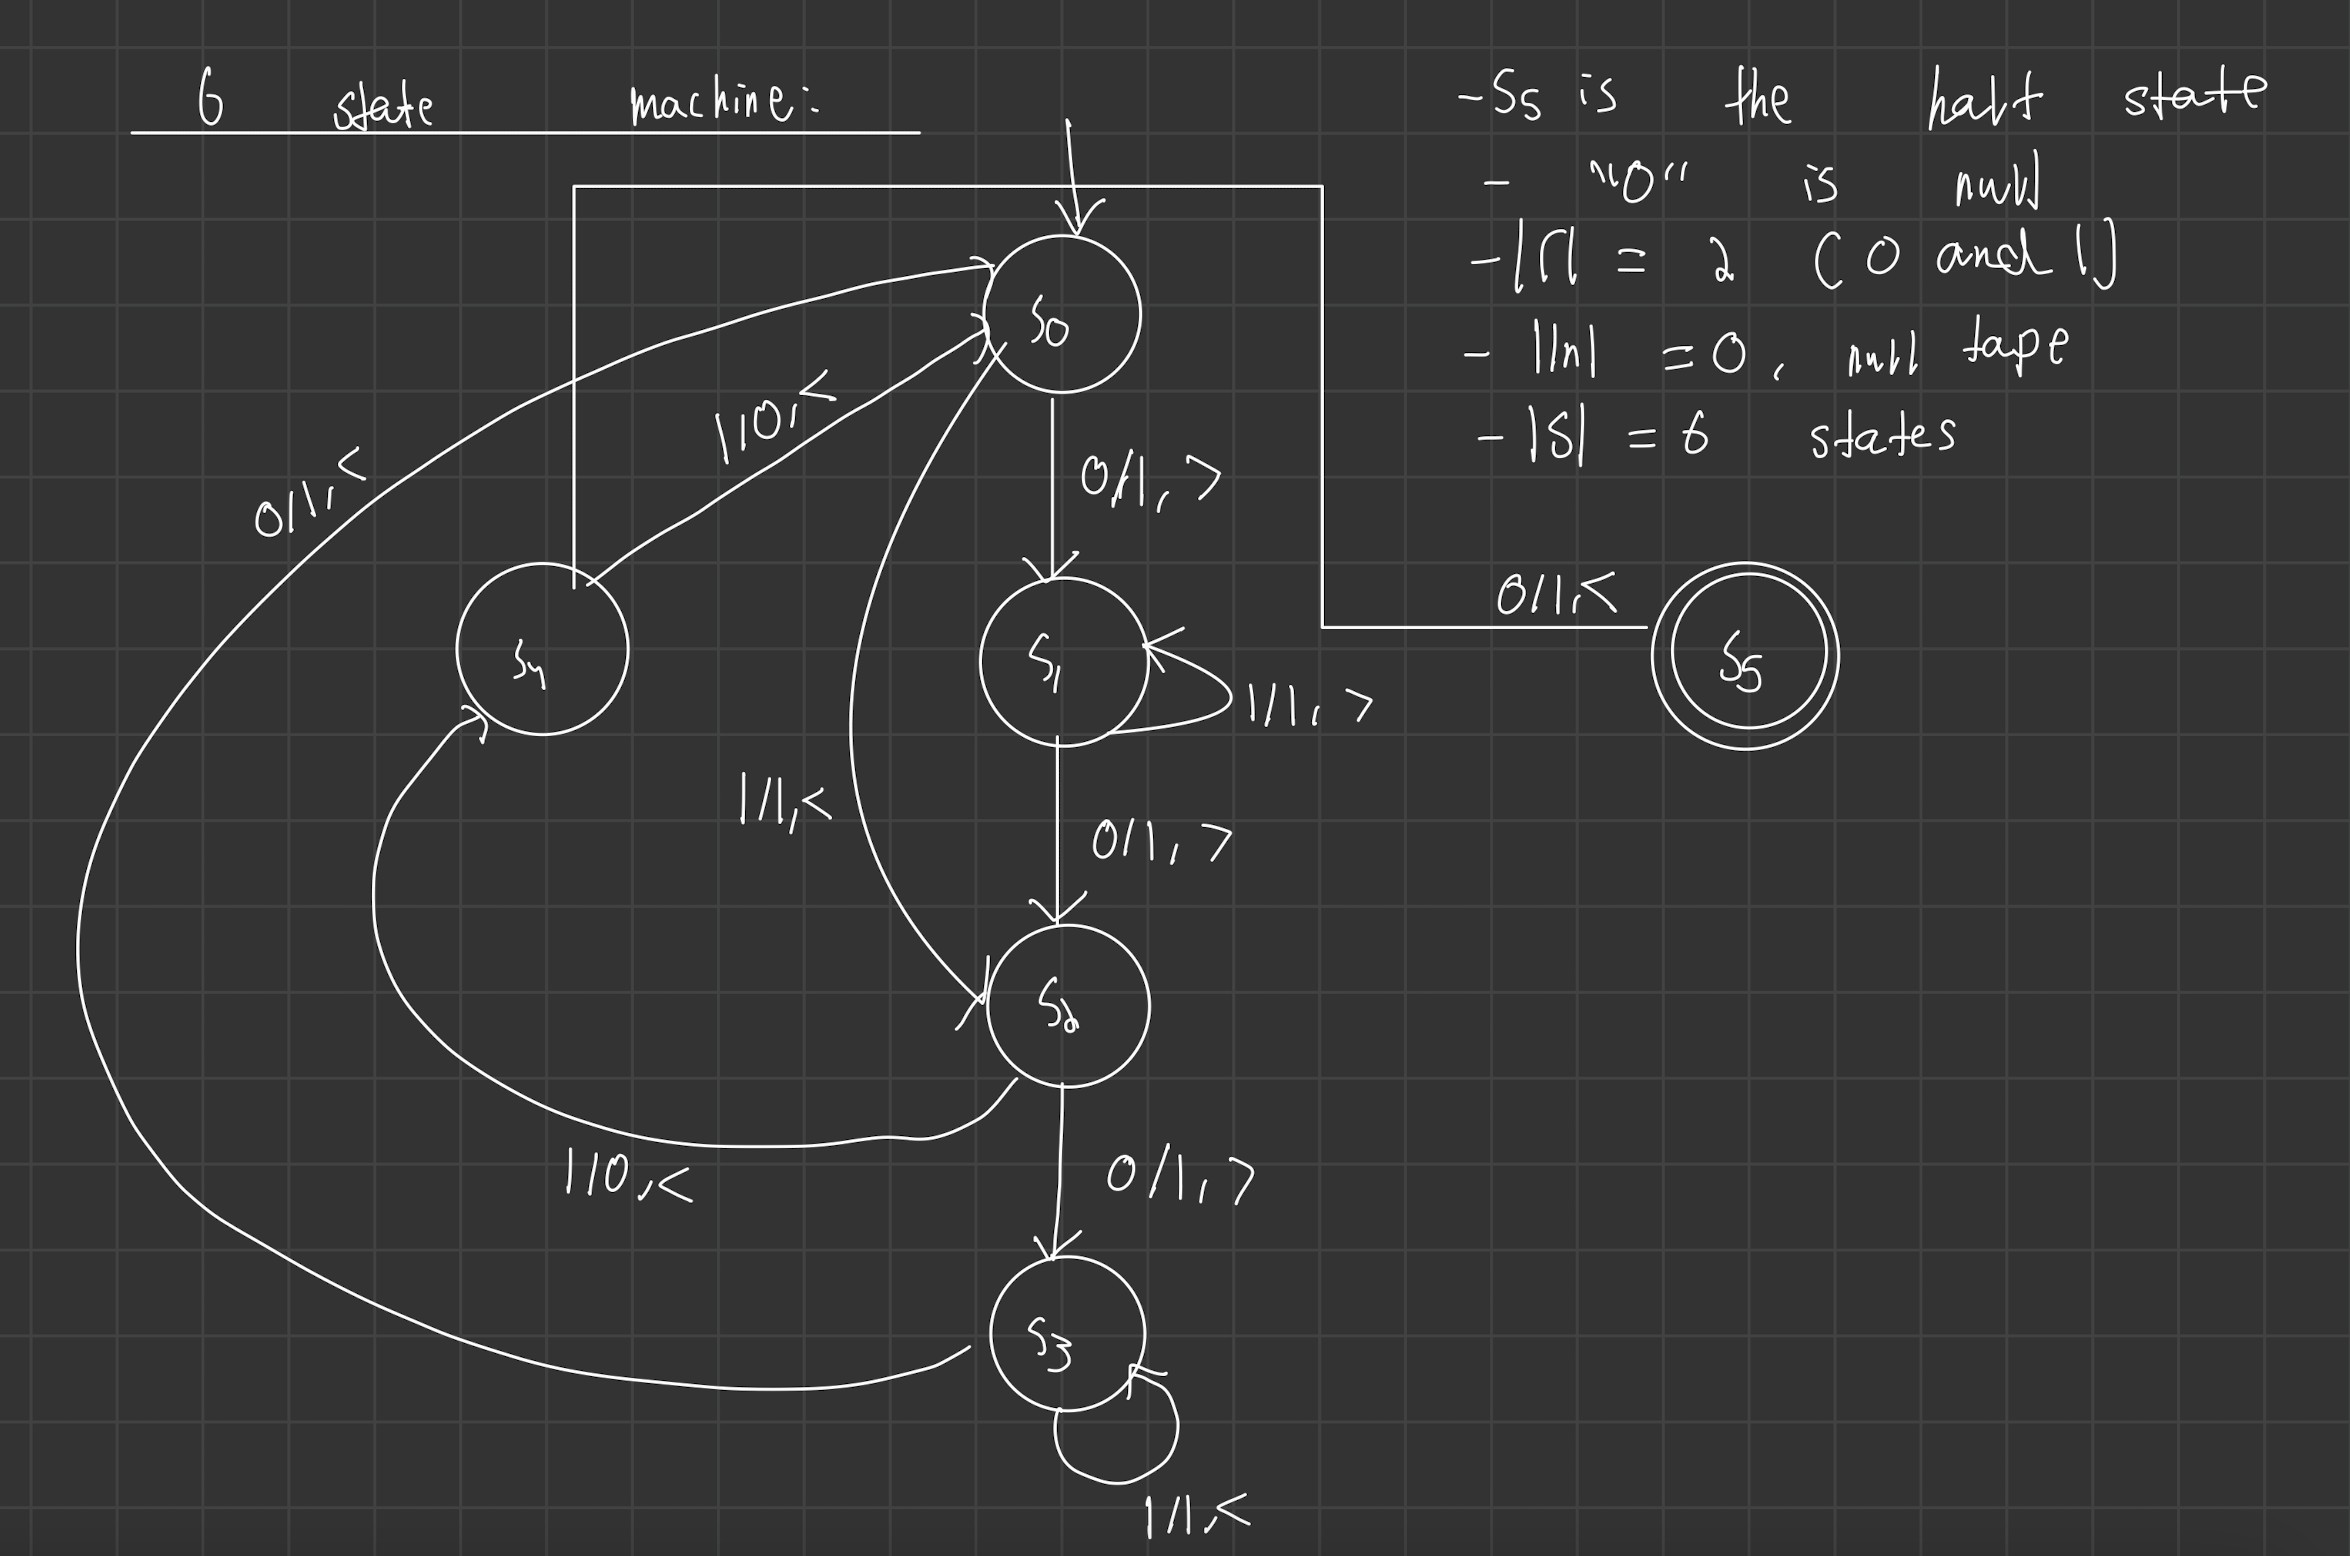 6 state machine:
- S5 is the halt state
- "0" is null
- |Γ| = 2 (0 and 1)
- |In| = 0, null tape
- |S| = 6 states
S0
1/0,<
0/1,<
0/1,>
0/1,<
S4
S1
S5
1/1,>
1/1,<
0/1,>
S2
1/0,<
0/1,>
S3
1/1,<